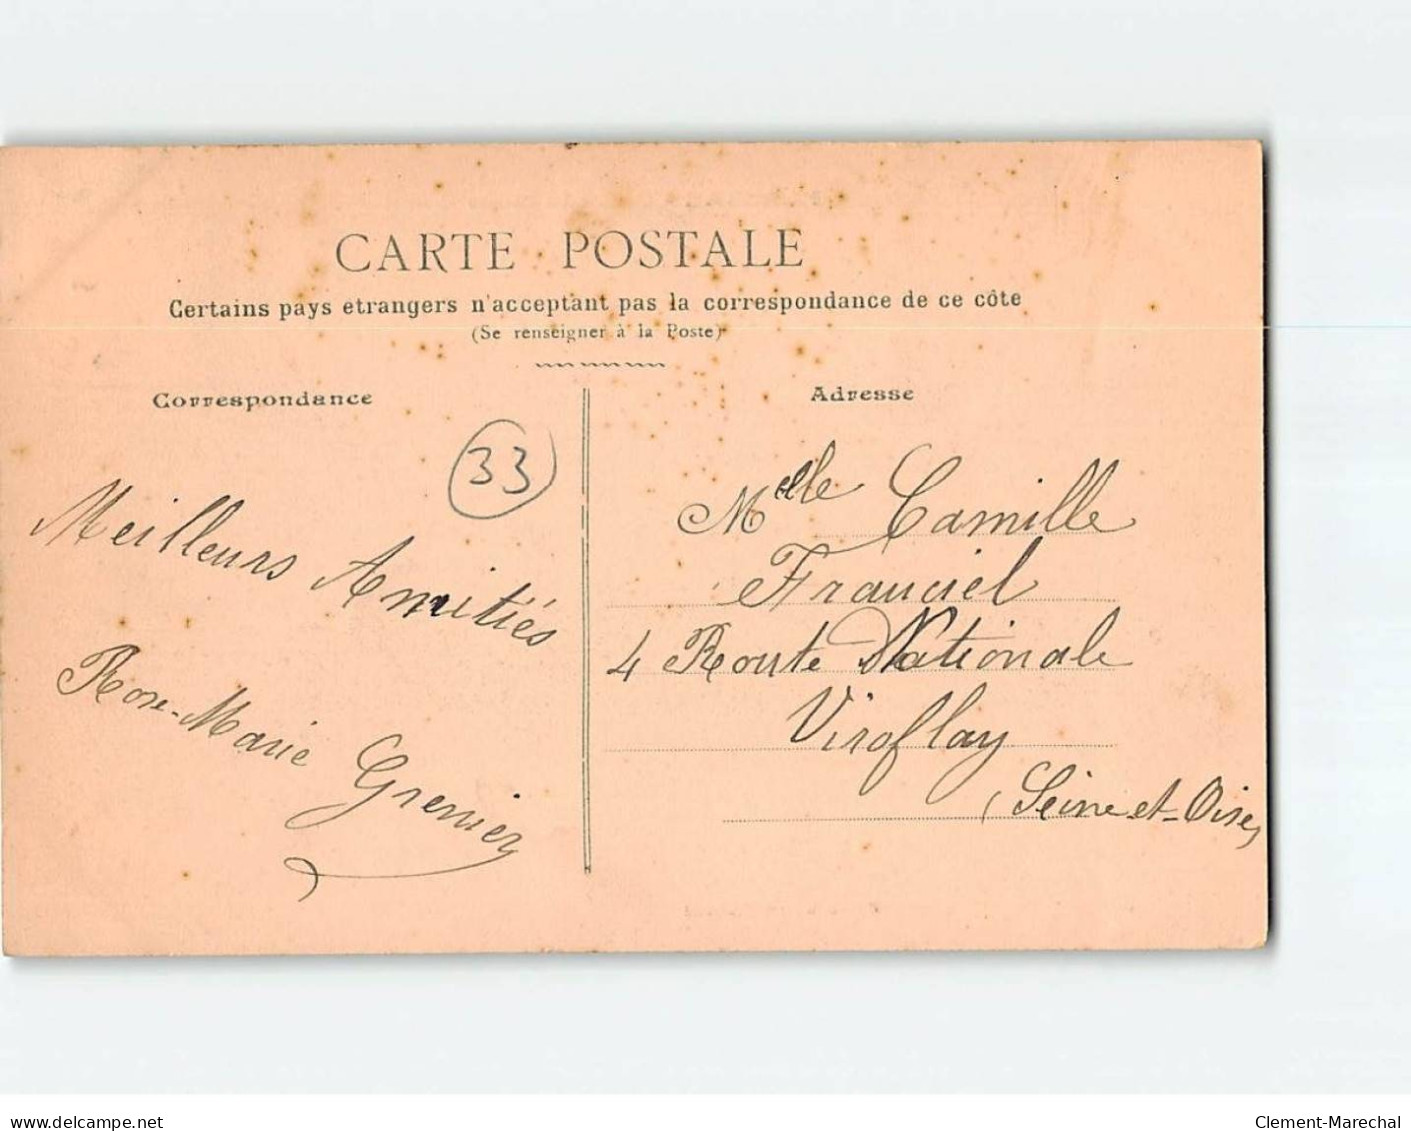 CARTE POSTALE
Certains pays etrangers n'acceptant pas la correspondance de ce côte
(Se renseigner à la Poste)
Correspondance
Adresse
33
Meilleurs Amitiés
Rose-Marie Grenier
Melle Camille
Franciel
4 Route Nationale
Viroflay
(Seine-et-Oise)
www.delcampe.net
Clement-Marechal